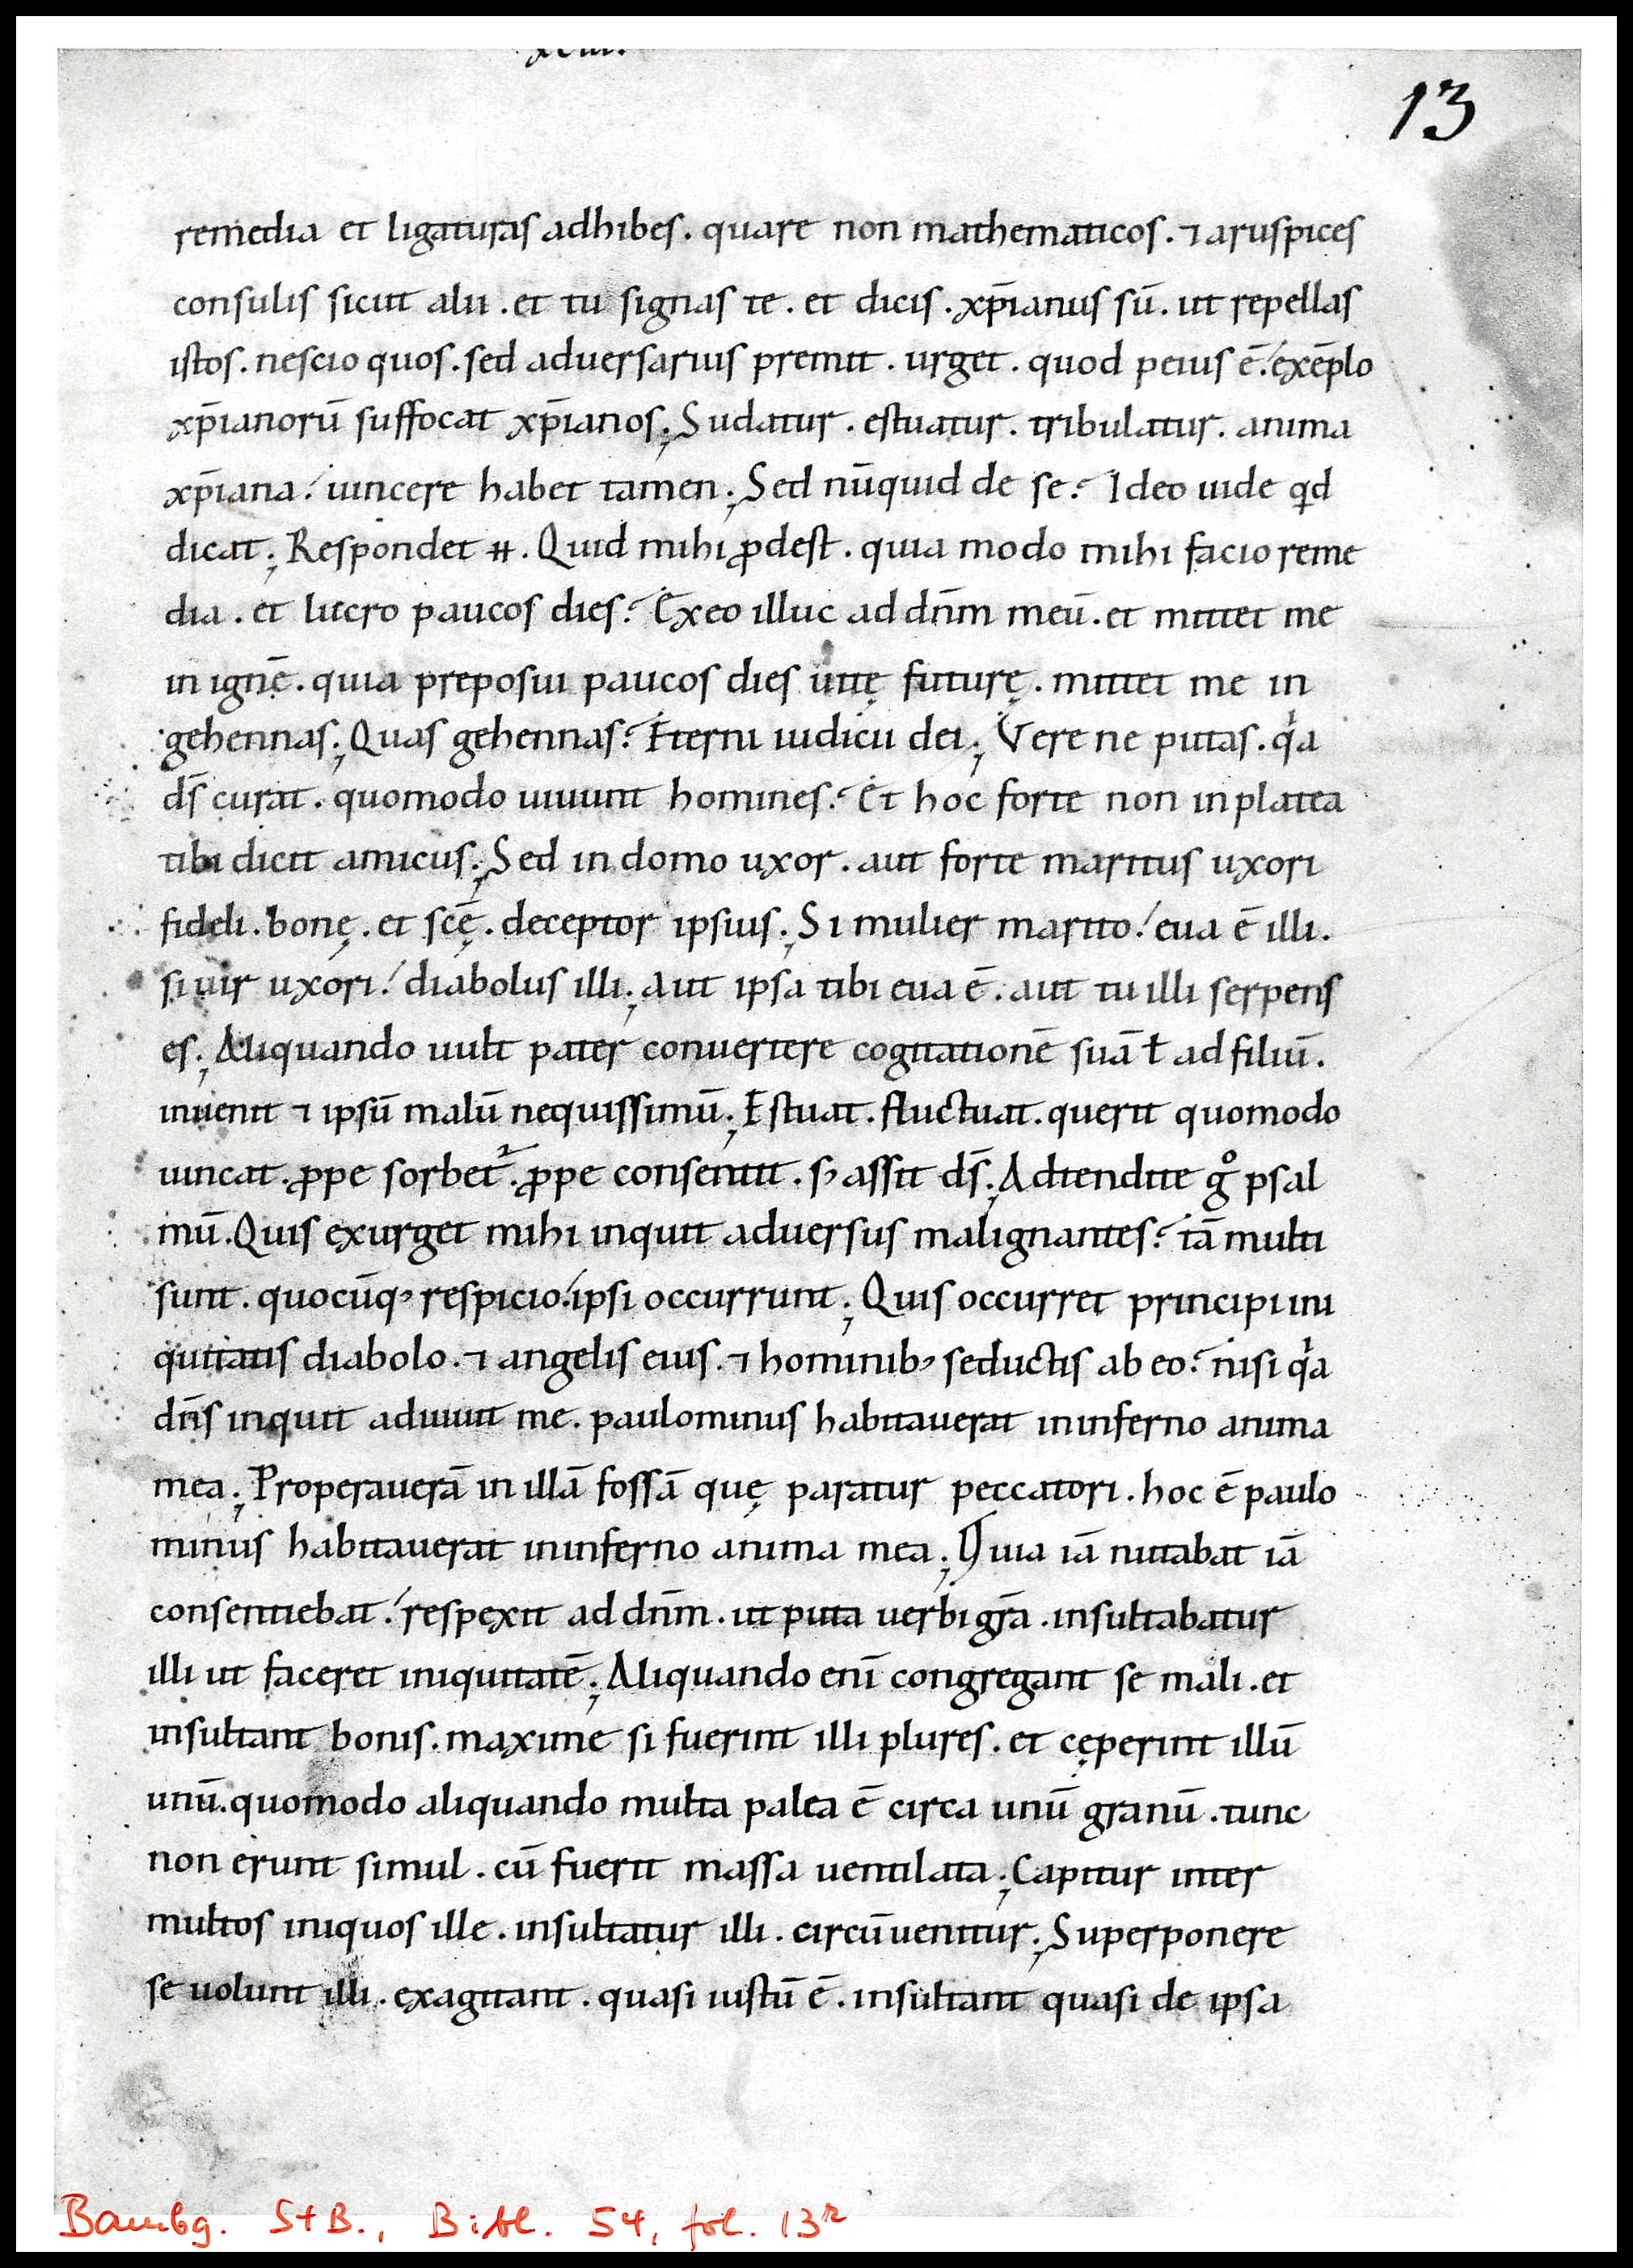 xciii.
13
remedia et ligaturas adhibes . quare non mathematicos . ⁊ aruspices
consulis sicut alii . et tu signas te . et dicis . xp̄ianus sū . ut repellas
istos . nescio quos . sed aduersarius premit . urget . quod peius ē . exēplo
xp̄ianorū suffocat xp̄ianos ; Sudatur . estuatur . tribulatur . anima
xp̄iana . uincere habet tamen ; Sed nūquid de se ? Ideo uide qđ
dicat ; Respondet . Quid mihi ꝓdest . quia modo mihi facio reme
dia . et lucro paucos dies ? Exeo illuc ad dn̄m meū . et mittet me
in ignē . quia preposui paucos dies uitę futurę . mittet me in
gehennas ; Quas gehennas ? Eterni iudicii dei ; Vere ne putas . qa
ds̄ curat . quomodo uiuunt homines ? Et hoc forte non in platea
tibi dicit amicus ; Sed in domo uxor . aut forte maritus uxori
fideli . bonę . et scę̄ . deceptor ipsius ; Si mulier marito . eua ē illi .
si uir uxori . diabolus illi ; aut ipsa tibi eua ē . aut tu illi serpens
es ; Aliquando uult pater conuertere cogitationē suā ł ad filiū .
inuenit ⁊ ipsū malū nequissimū ; Estuat . fluctuat . querit quomodo
uincat . ꝓpe sorbet᷑ . ꝓpe consentit . s; assit ds̄ ; Adtendite gͦ psal
mū . Quis exurget mihi inquit aduersus malignantes ? tā multi
sunt . quocūq; respicio . ipsi occurrunt ; Quis occurret principi ini
quitatis diabolo . ⁊ angelis eius . ⁊ hominib; seductis ab eo ? nisi qa
dn̄s inquit adiuuit me . paulominus habitauerat in inferno anima
mea ; Properauerā in illā fossā quę paratur peccatori . hoc ē paulo
minus habitauerat in inferno anima mea ; Quia iā nutabat iā
consentiebat . respexit ad dn̄m . ut puta uerbi gr̄a . insultabatur
illi ut faceret iniquitatē ; Aliquando enī congregant se mali . et
insultant bonis . maxime si fuerint illi plures . et cęperint illū
unū . quomodo aliquando multa palea ē circa unū granū . tunc
non erunt simul . cū fuerit massa uentilata ; Capitur inter
multos iniquos ille . insultatur illi . circūuenitur ; Superponere
se uolunt illi . exagitant . quasi iustū ē . insultant quasi de ipsa
Bambg. StB., Bibl. 54, fol. 13r